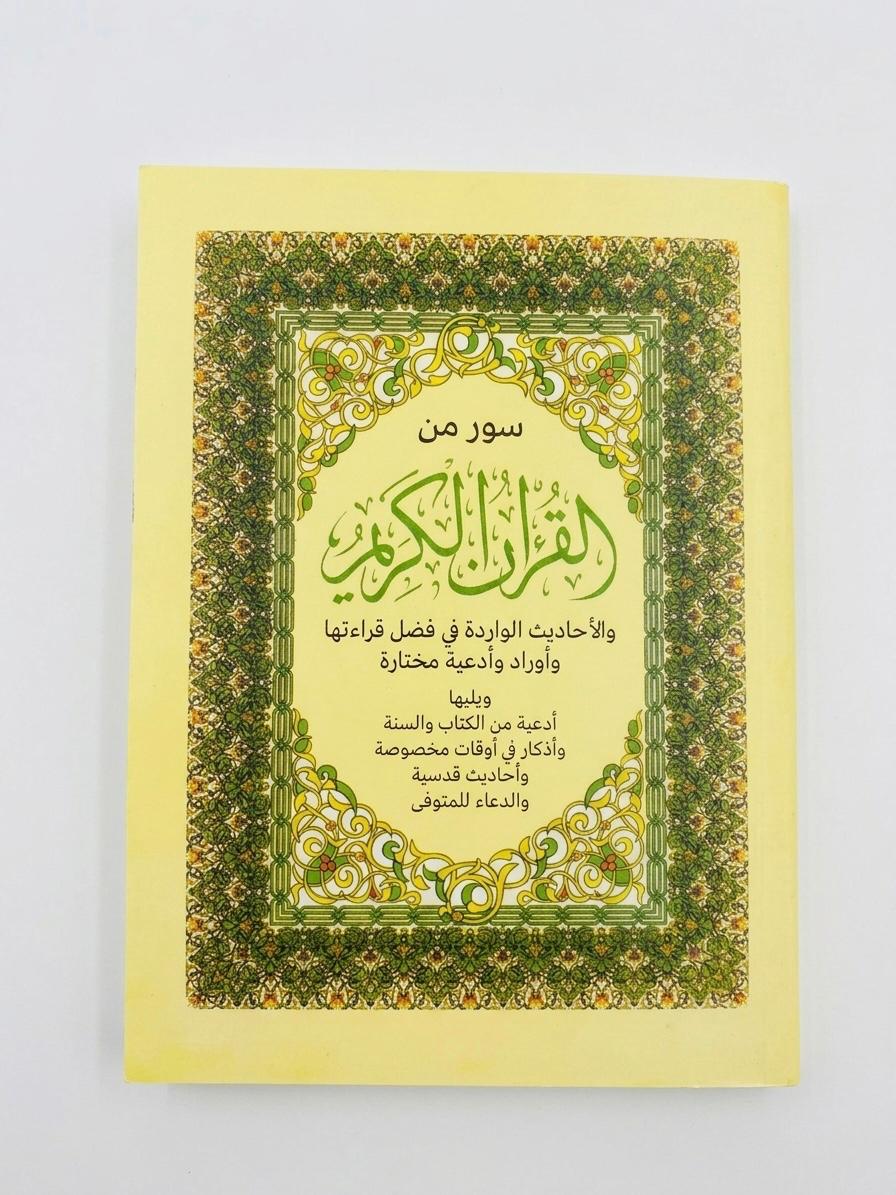 سور من
القرآن الكريم
والأحاديث الواردة في فضل قراءتها
وأوراد وأدعية مختارة
ويليها
أدعية من الكتاب والسنة
وأذكار في أوقات مخصوصة
وأحاديث قدسية
والدعاء للمتوفى